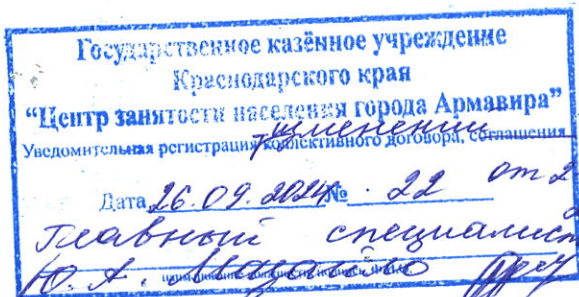 Государственное казённое учреждение
Краснодарского края
“Центр занятости населения города Армавира”
изменений
Уведомительная регистрация коллективного договора, соглашения
Дата 26.09.2024 № 22 от 2
Главный специалист
Ю. А.